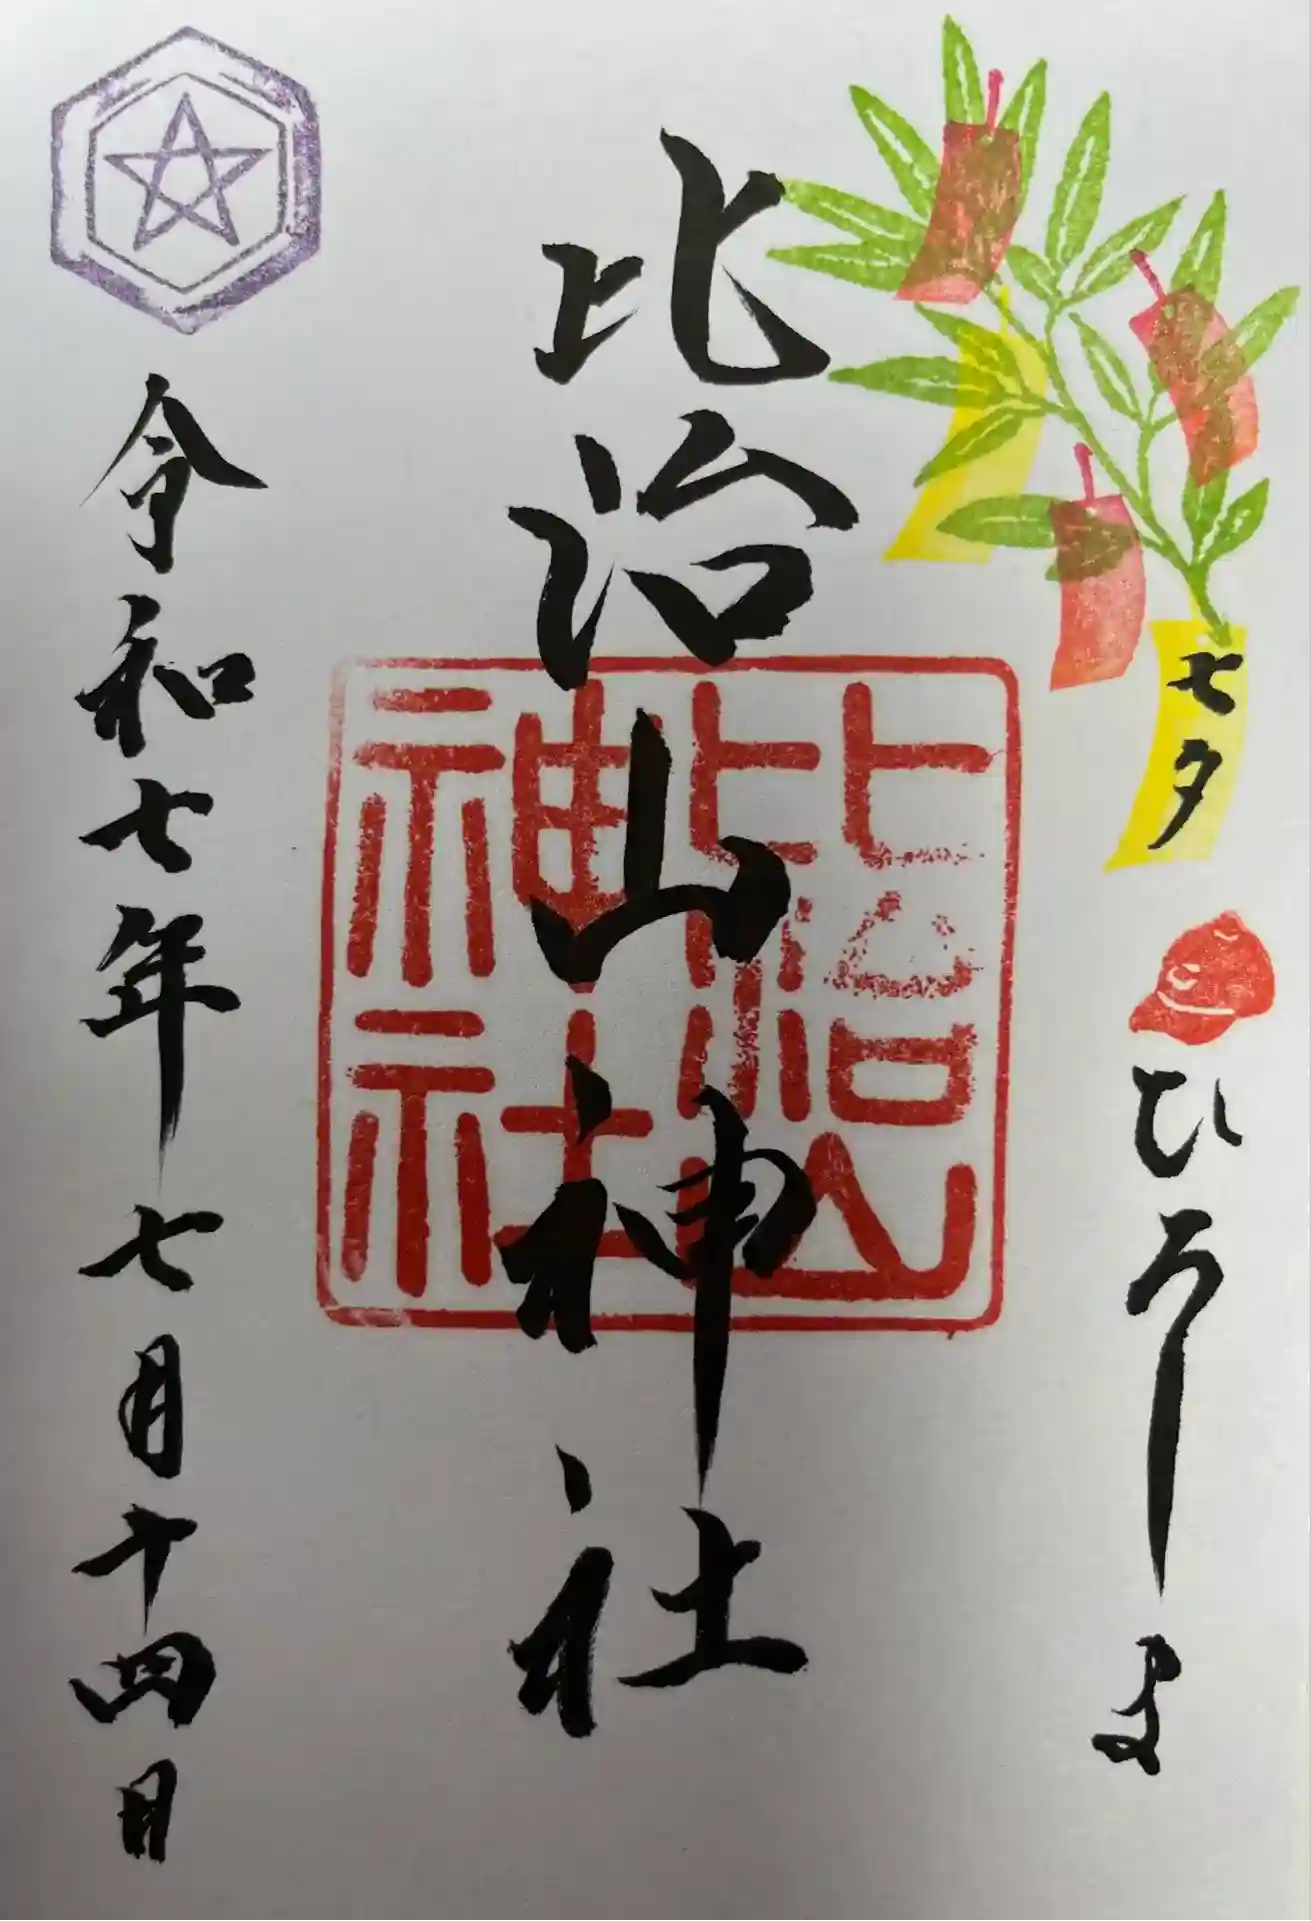 七夕
ひろしま
比治山神社
比治山
神社
令和七年七月十四日